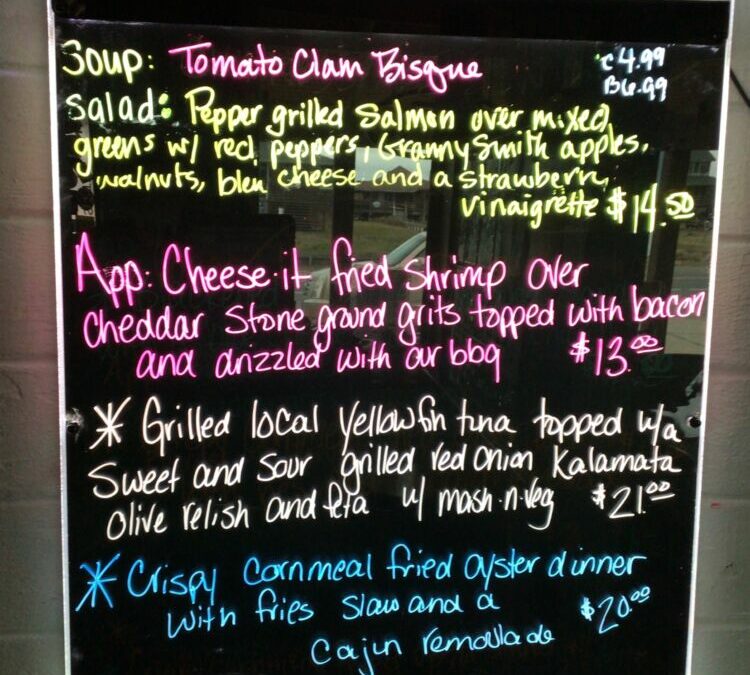 Soup: Tomato Clam Bisque c 4.99
B 6.99
Salad: Pepper grilled Salmon over mixed
greens w/ red peppers, Granny Smith apples,
walnuts, bleu cheese and a strawberry
vinaigrette $14.50
App: Cheese-it fried shrimp over
cheddar stone ground grits topped with bacon
and drizzled with our bbq $13.00
* Grilled local yellowfin tuna topped w/a
Sweet and Sour grilled red onion Kalamata
Olive relish and feta w/ mash-n-veg $21.00
* Crispy cornmeal fried oyster dinner
with fries slaw and a $20.00
Cajun remoulade